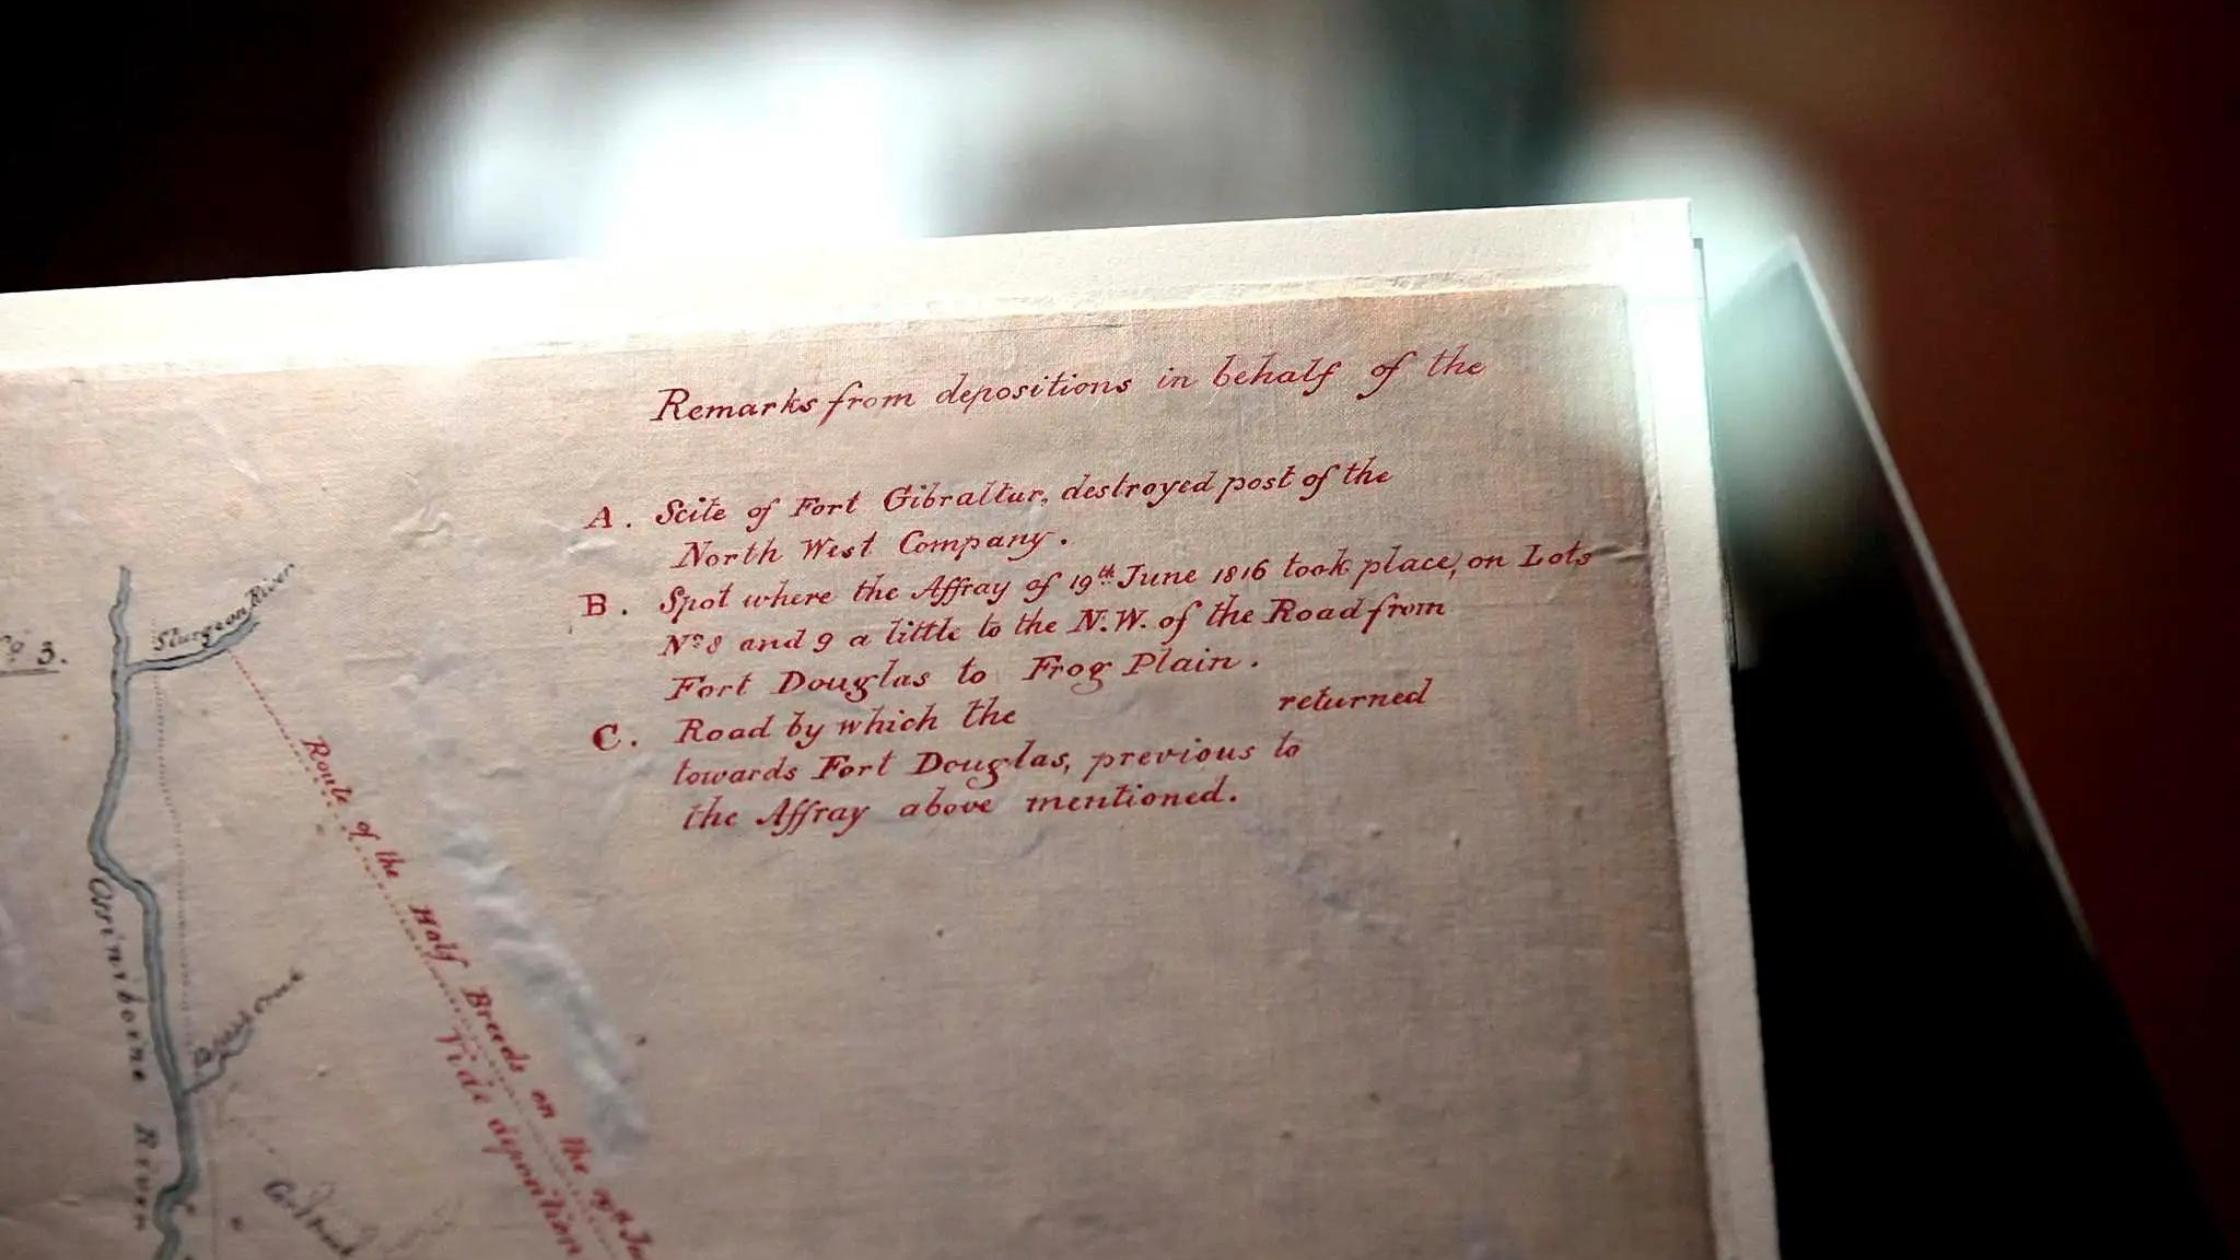 Remarks from depositions in behalf of the
A. Scite of Fort Gibraltur, destroyed post of the
North West Company.
B. Spot where the Affray of 19th June 1816 took place, on Lots
Nos 8 and 9 a little to the N.W. of the Road from
Fort Douglas to Frog Plain.
C. Road by which the returned
towards Fort Douglas, previous to
the Affray above mentioned.
3.
Sturgeon River
Assiniboine River
Route of the Half Breeds on the 19th
Vide deposition